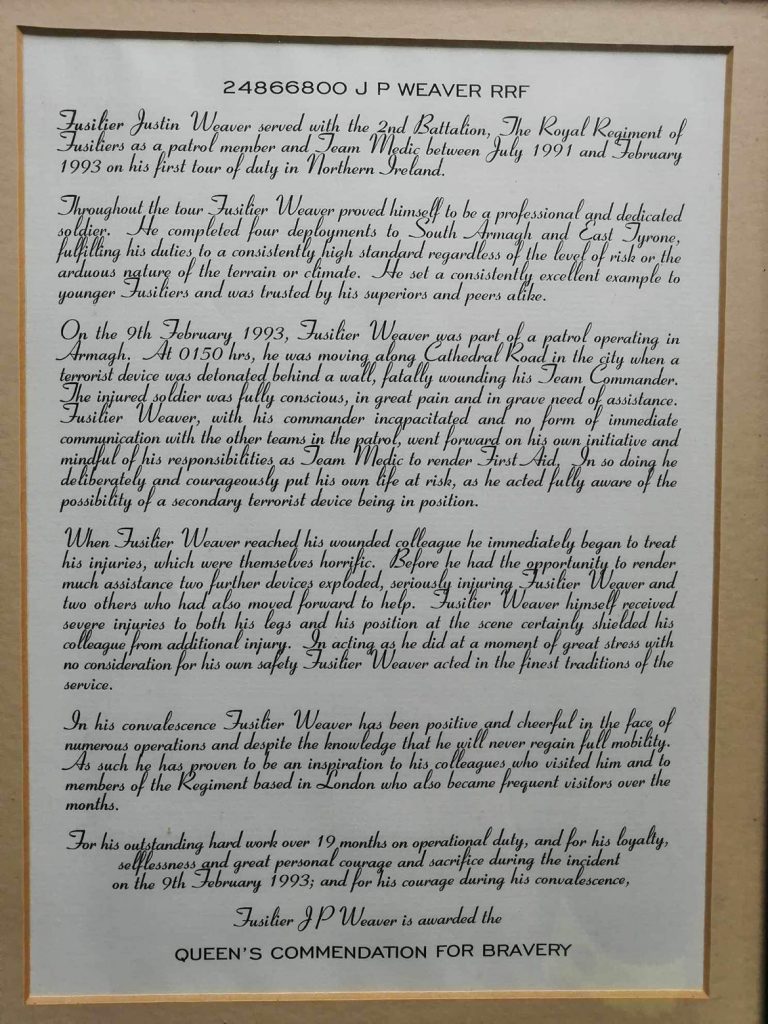 24866800 J P WEAVER RRF
Fusilier Justin Weaver served with the 2nd Battalion, The Royal Regiment of
Fusiliers as a patrol member and Team Medic between July 1991 and February
1993 on his first tour of duty in Northern Ireland.
Throughout the tour Fusilier Weaver proved himself to be a professional and dedicated
soldier. He completed four deployments to South Armagh and East Tyrone,
fulfilling his duties to a consistently high standard regardless of the level of risk or the
arduous nature of the terrain or climate. He set a consistently excellent example to
younger Fusiliers and was trusted by his superiors and peers alike.
On the 9th February 1993, Fusilier Weaver was part of a patrol operating in
Armagh. At 0150 hrs, he was moving along Cathedral Road in the city when a
terrorist device was detonated behind a wall, fatally wounding his Team Commander.
The injured soldier was fully conscious, in great pain and in grave need of assistance.
Fusilier Weaver, with his commander incapacitated and no form of immediate
communication with the other teams in the patrol, went forward on his own initiative and
mindful of his responsibilities as Team Medic to render First Aid. In so doing he
deliberately and courageously put his own life at risk, as he acted fully aware of the
possibility of a secondary terrorist device being in position.
When Fusilier Weaver reached his wounded colleague he immediately began to treat
his injuries, which were themselves horrific. Before he had the opportunity to render
much assistance two further devices exploded, seriously injuring Fusilier Weaver and
two others who had also moved forward to help. Fusilier Weaver himself received
severe injuries to both his legs and his position at the scene certainly shielded his
colleague from additional injury. In acting as he did at a moment of great stress with
no consideration for his own safety Fusilier Weaver acted in the finest traditions of the
service.
In his convalescence Fusilier Weaver has been positive and cheerful in the face of
numerous operations and despite the knowledge that he will never regain full mobility.
As such he has proven to be an inspiration to his colleagues who visited him and to
members of the Regiment based in London who also became frequent visitors over the
months.
For his outstanding hard work over 19 months on operational duty, and for his loyalty,
selflessness and great personal courage and sacrifice during the incident
on the 9th February 1993; and for his courage during his convalescence,
Fusilier J P Weaver is awarded the
QUEEN'S COMMENDATION FOR BRAVERY